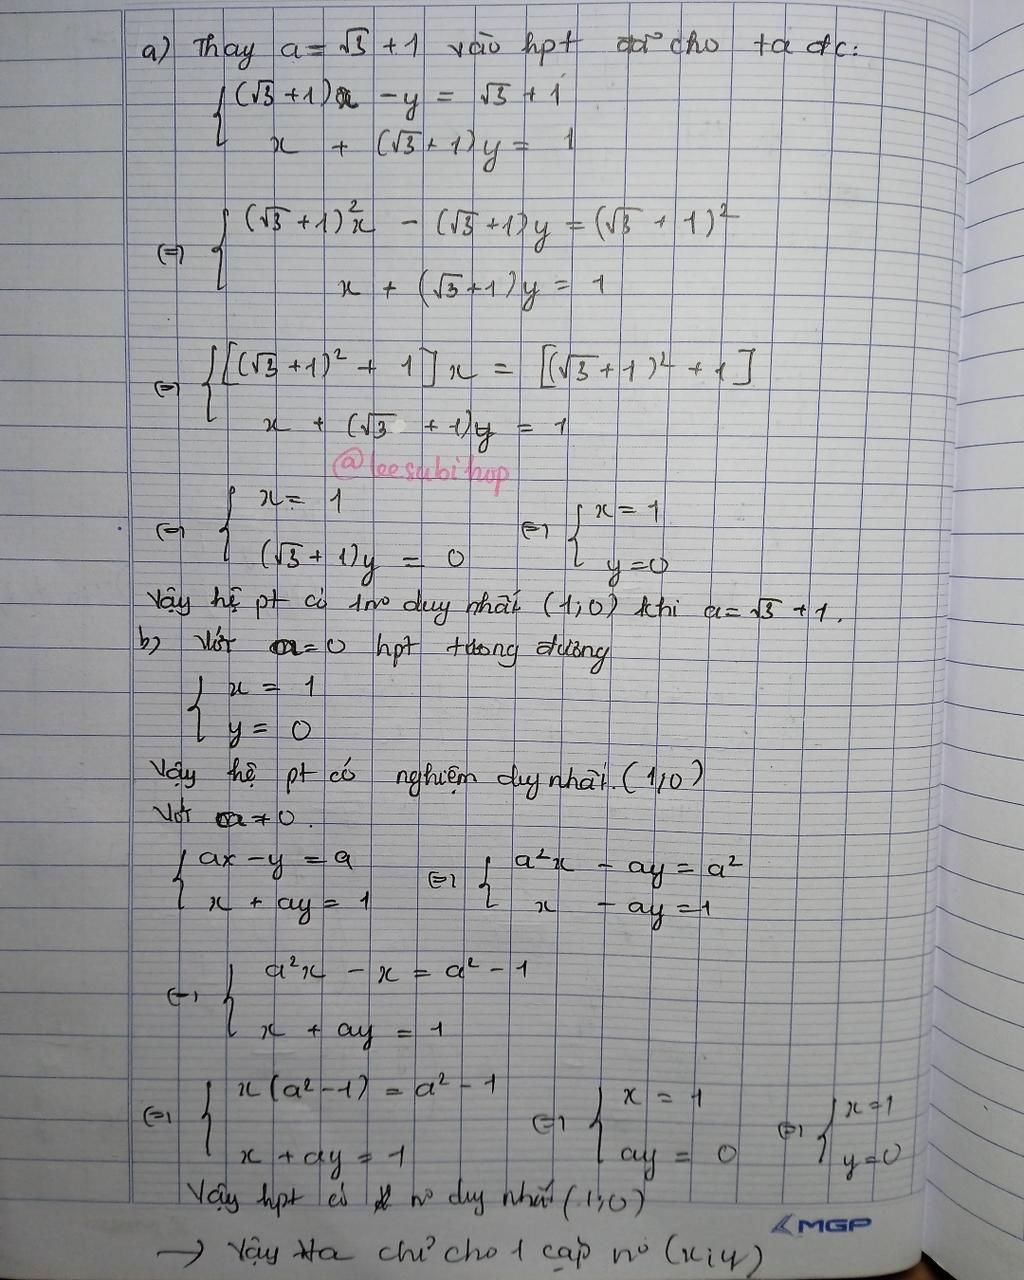 a) Thay a = √3 + 1 vào hpt đã cho ta đc:
{ (√3 + 1)x - y = √3 + 1
x + (√3 + 1)y = 1
(=) { (√3 + 1)²x - (√3 + 1)y = (√3 + 1)²
x + (√3 + 1)y = 1
(=) { [(√3 + 1)² + 1]x = [(√3 + 1)² + 1]
x + (√3 + 1)y = 1
@leesubihop
(=) { x = 1 (=) { x = 1
(√3 + 1)y = 0 y = 0
Vậy hệ pt có 1 no duy nhất (1;0) khi a = √3 + 1.
b) Với a = 0 hpt tương đương
{ x = 1
y = 0
Vậy hệ pt có nghiệm duy nhất (1;0)
Với a ≠ 0.
{ ax - y = a (=) { a²x - ay = a²
x + ay = 1 x - ay = 1
(=) { a²x - x = a² - 1
x + ay = 1
(=) { x(a² - 1) = a² - 1 (=) { x = 1 (=) { x = 1
x + ay = 1 ay = 0 y = 0
Vậy hpt có no duy nhất (1;0)
MGP
→ Vậy chỉ cho 1 cặp no (x;y)